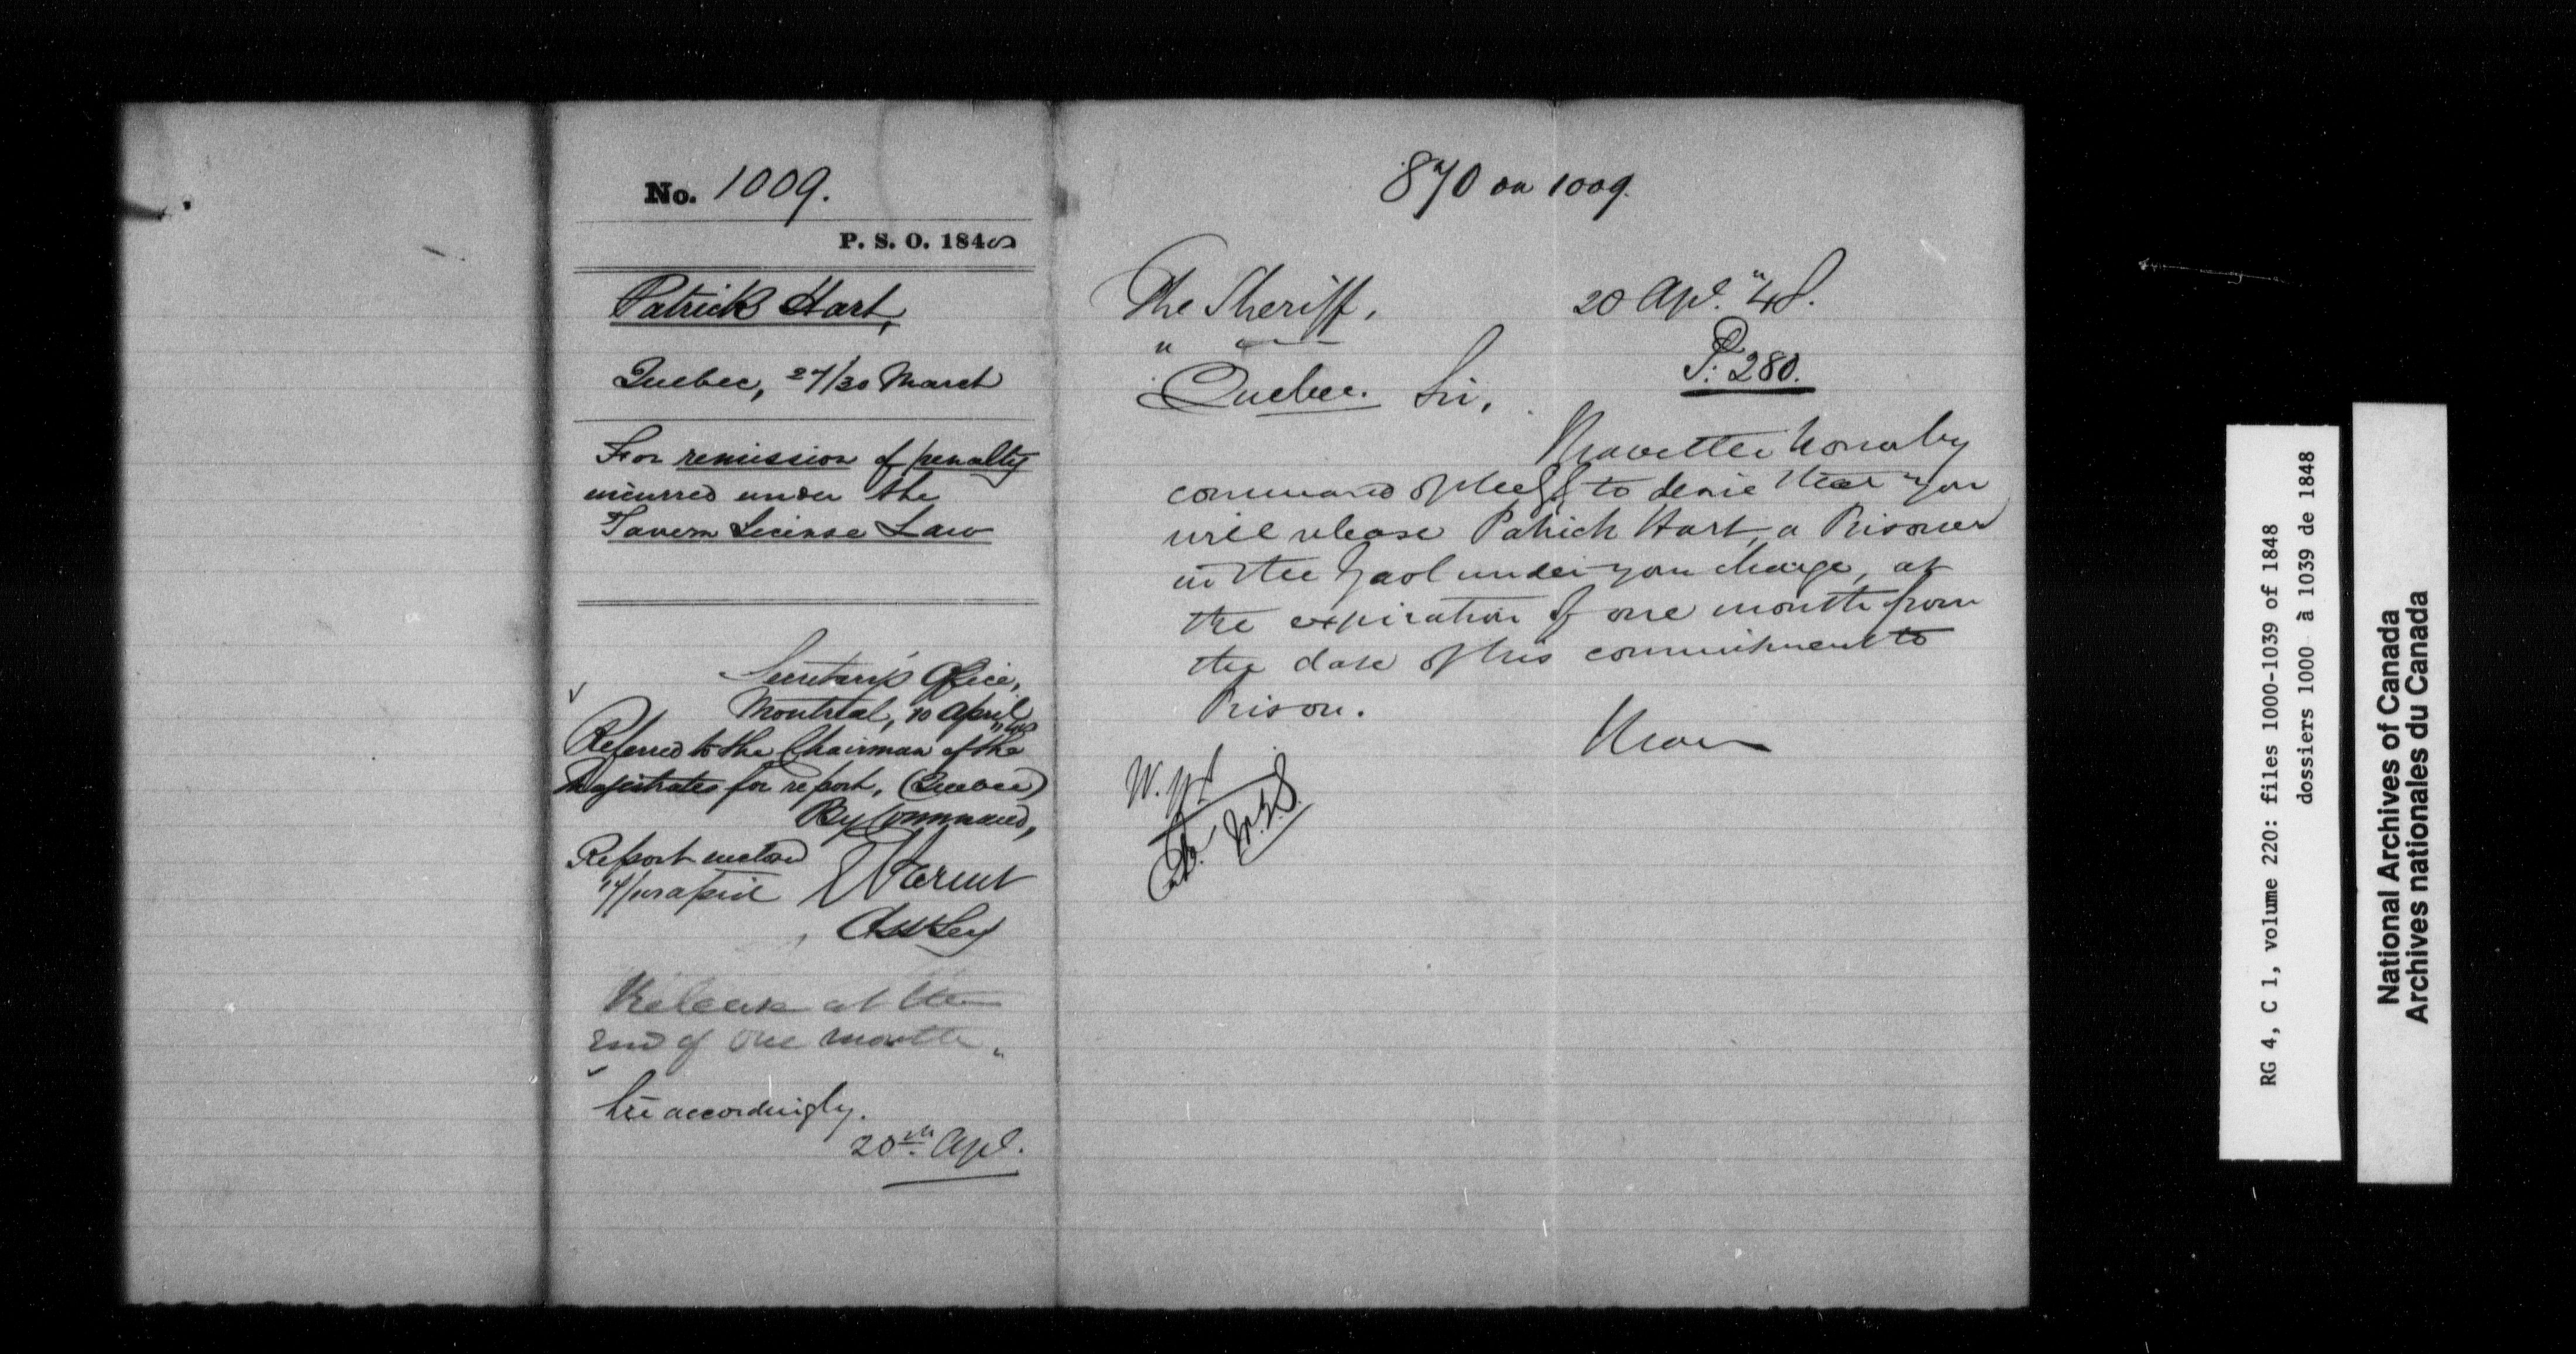 No. 1009.
P. S. O. 1848
Patrick Hart,
Quebec, 27/30 March
For remission of penalty
incurred under the
Tavern License Law
Secretary's Office,
Montreal, 10 April
Referred to the Chairman of the
Magistrates for report, (Quebec)
By Command,
Report
April
Release at the
end of one month.
accordingly.
20th Apl.
870 on 1009.
The Sheriff,
20 Apl. "48.
" "
P. 280.
Quebec. Sir,
I have the honor by
command of to desire that you
will release Patrick Hart, a Prisoner
in the Gaol under your charge, at
the expiration of one month from
the date of his commitment to
Prison.
I have
RG 4, C 1, volume 220: files 1000-1039 of 1848
dossiers 1000 à 1039 de 1848
National Archives of Canada
Archives nationales du Canada